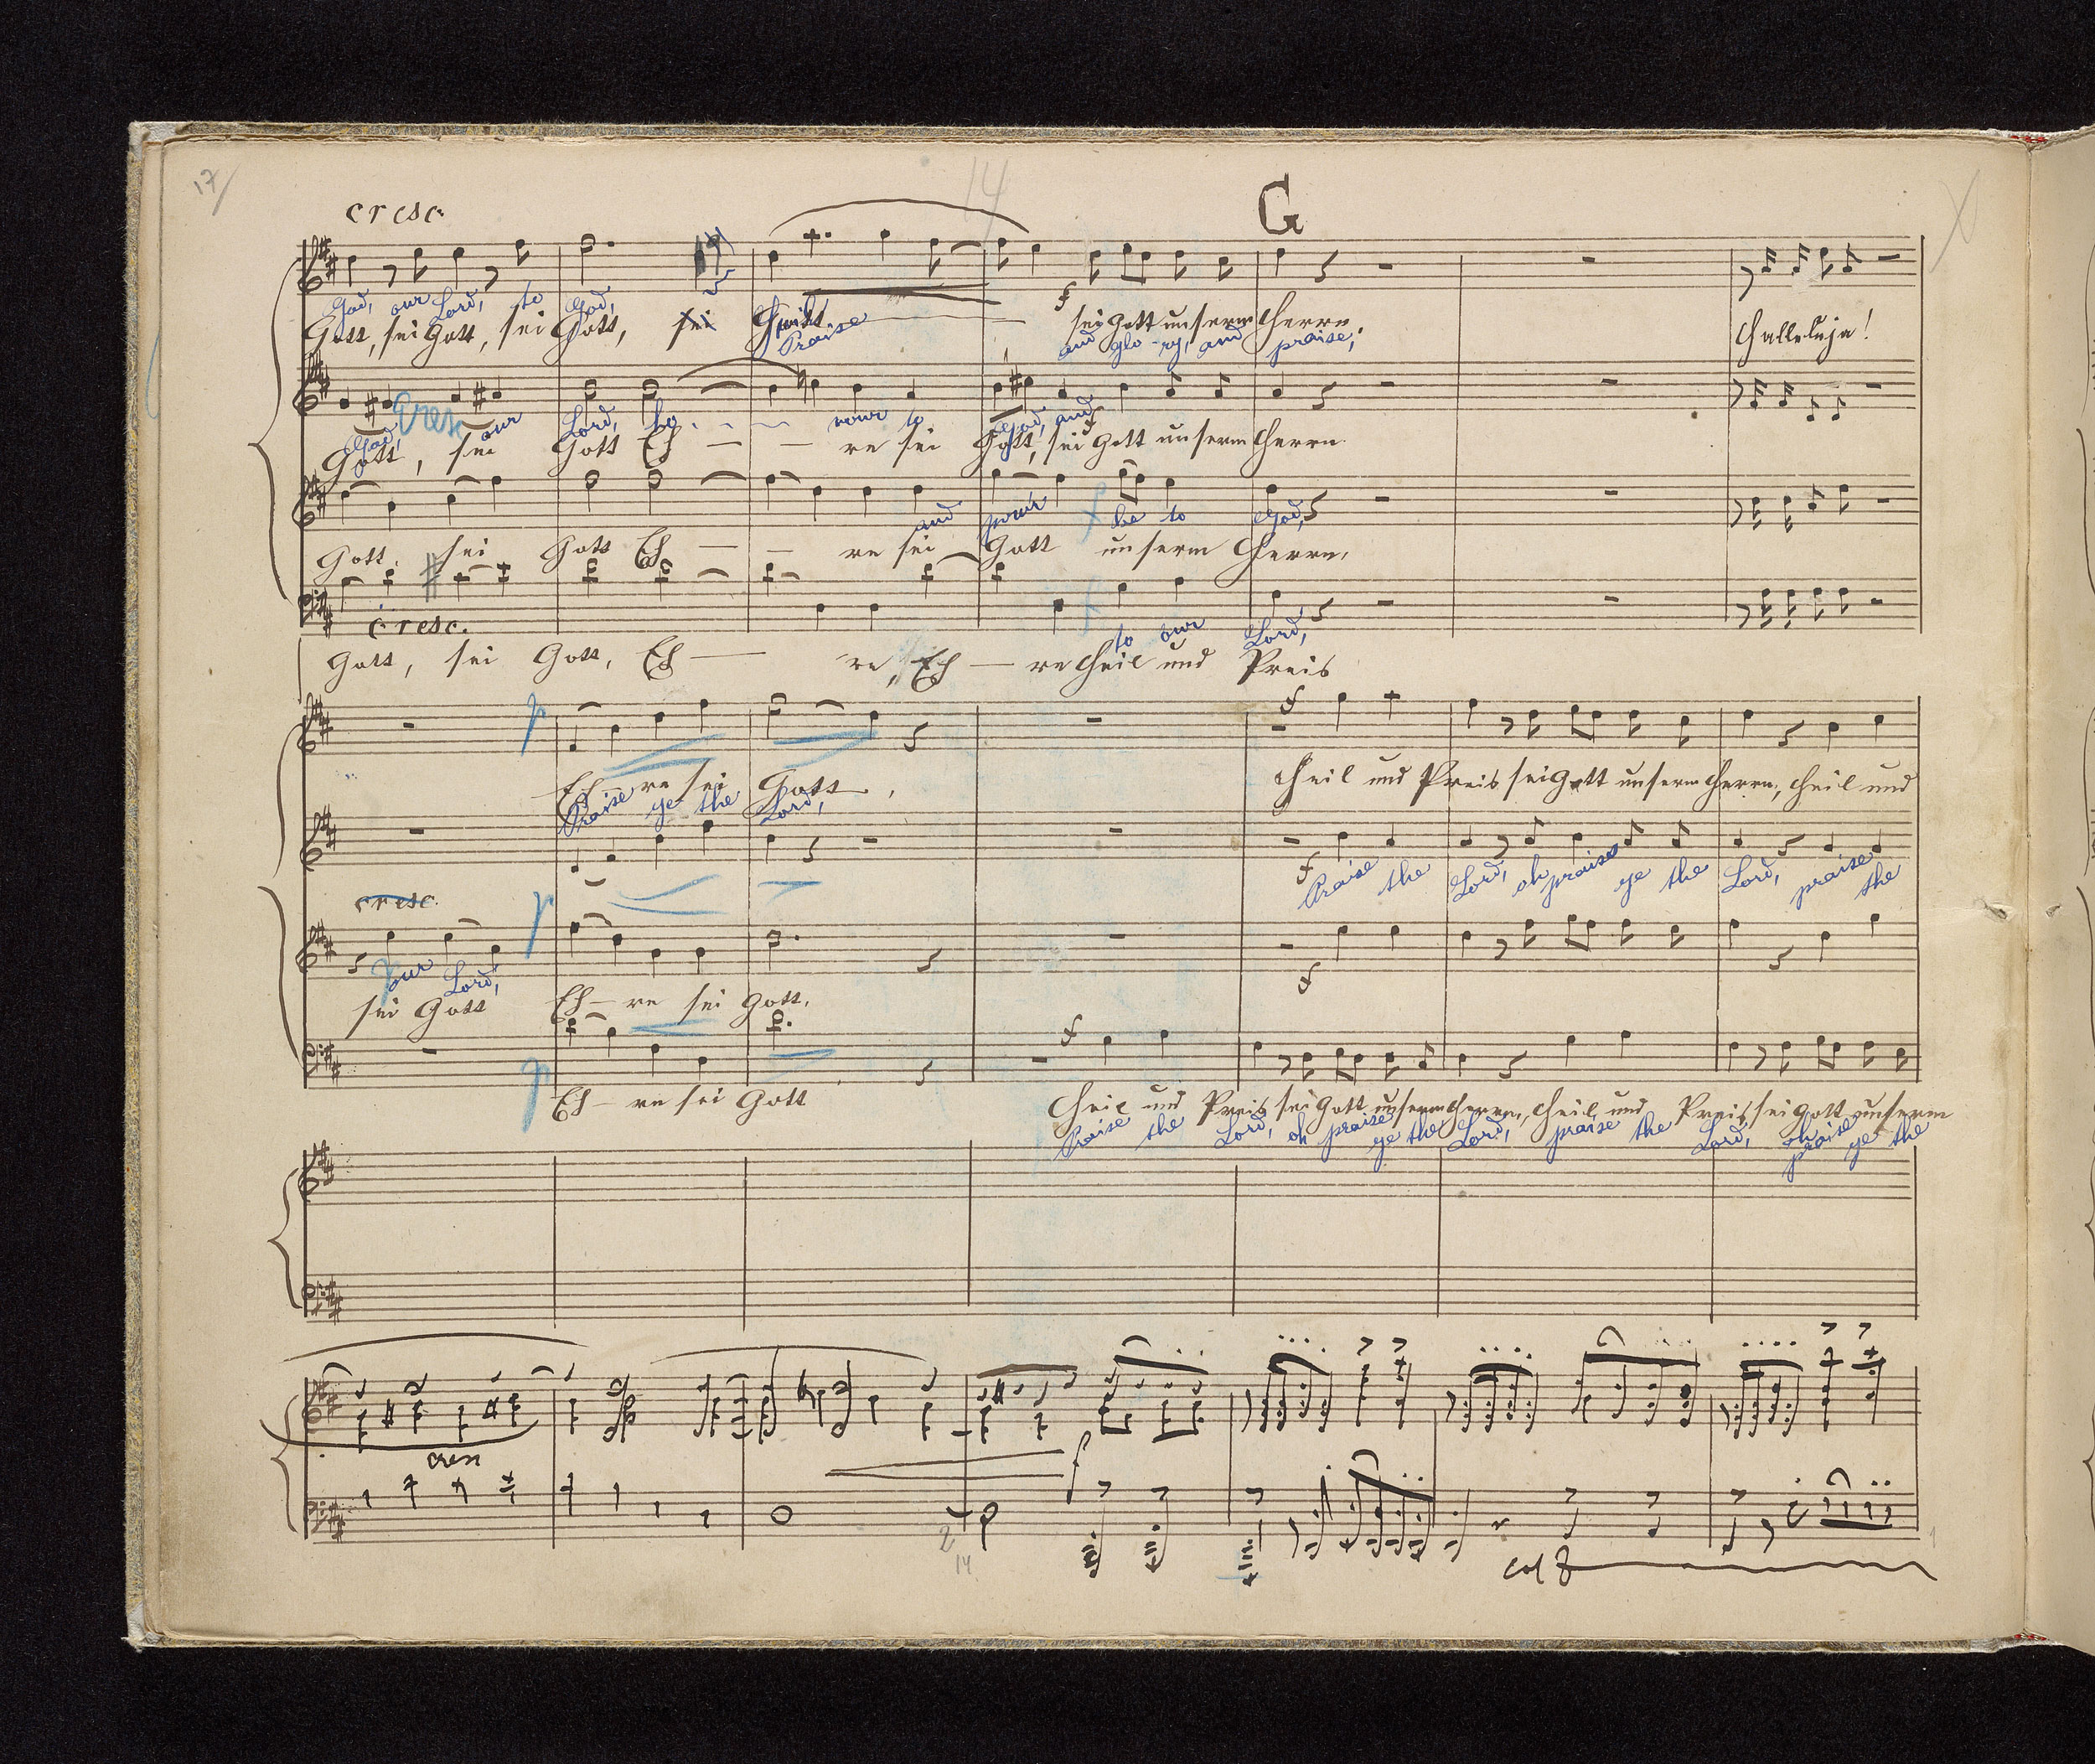 17/
14
cresc.
G
God, our Lord, to God,
Gott, sei Gott, sei Gott, sei
Praise
sei Gott unserm Herrn.
and glo-ry, and praise,
Halleluja!
Cresc
God, our Lord, ho - - nour to God, and
Gott, sei Gott Eh — — re sei Gott, sei Gott unserm Herrn.
and pow'r be to God,
Gott. sei Gott Eh — — re sei Gott unserm Herrn.
cresc.
to our Lord,
Gott, sei Gott, Eh — re, Eh — re Heil und Preis
p
f
Eh — re sei Gott,
Heil und Preis sei Gott unserm Herrn, Heil und
Praise ye the Lord,
f
Praise the Lord, oh praise ye the Lord, praise the
cresc.
p
f
our Lord,
sei Gott Eh — re sei Gott.
p
f
Eh — re sei Gott
Heil und Preis sei Gott unserm Herrn, Heil und Preis sei Gott unserm
Praise the Lord, oh praise ye the Lord, praise the Lord, oh praise ye the
cres
f
2
14
col 8